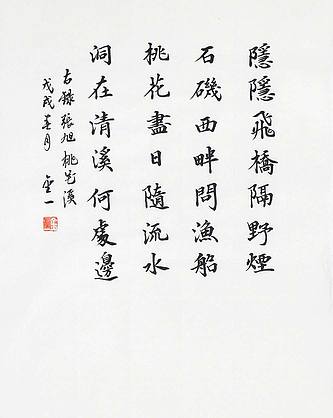 隱隱飛橋隔野煙
石磯西畔問漁船
桃花盡日隨流水
洞在清溪何處邊
右錄張旭桃花溪
戊戌春月 奎一